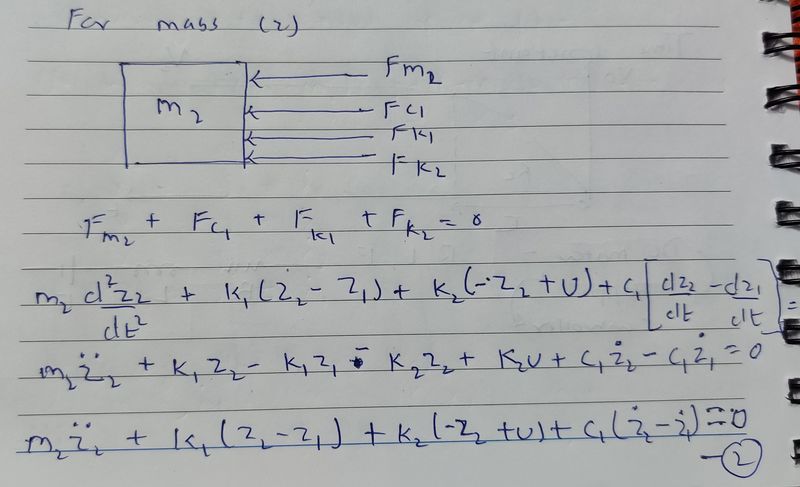 For mass (2)
m₂
Fm₂
Fc₁
Fk₁
Fk₂
Fm₂ + Fc₁ + Fk₁ + Fk₂ = 0
m₂ d²z₂/dt² + k₁(z₂ - z₁) + k₂(-z₂ + U) + c₁[dz₂/dt - dz₁/dt] =
m₂z̈₂ + k₁z₂ - k₁z₁ - k₂z₂ + k₂U + c₁ż₂ - c₁ż₁ = 0
m₂z̈₂ + k₁(z₂ - z₁) + k₂(-z₂ + U) + c₁(ż₂ - ż₁) = 0
- 2